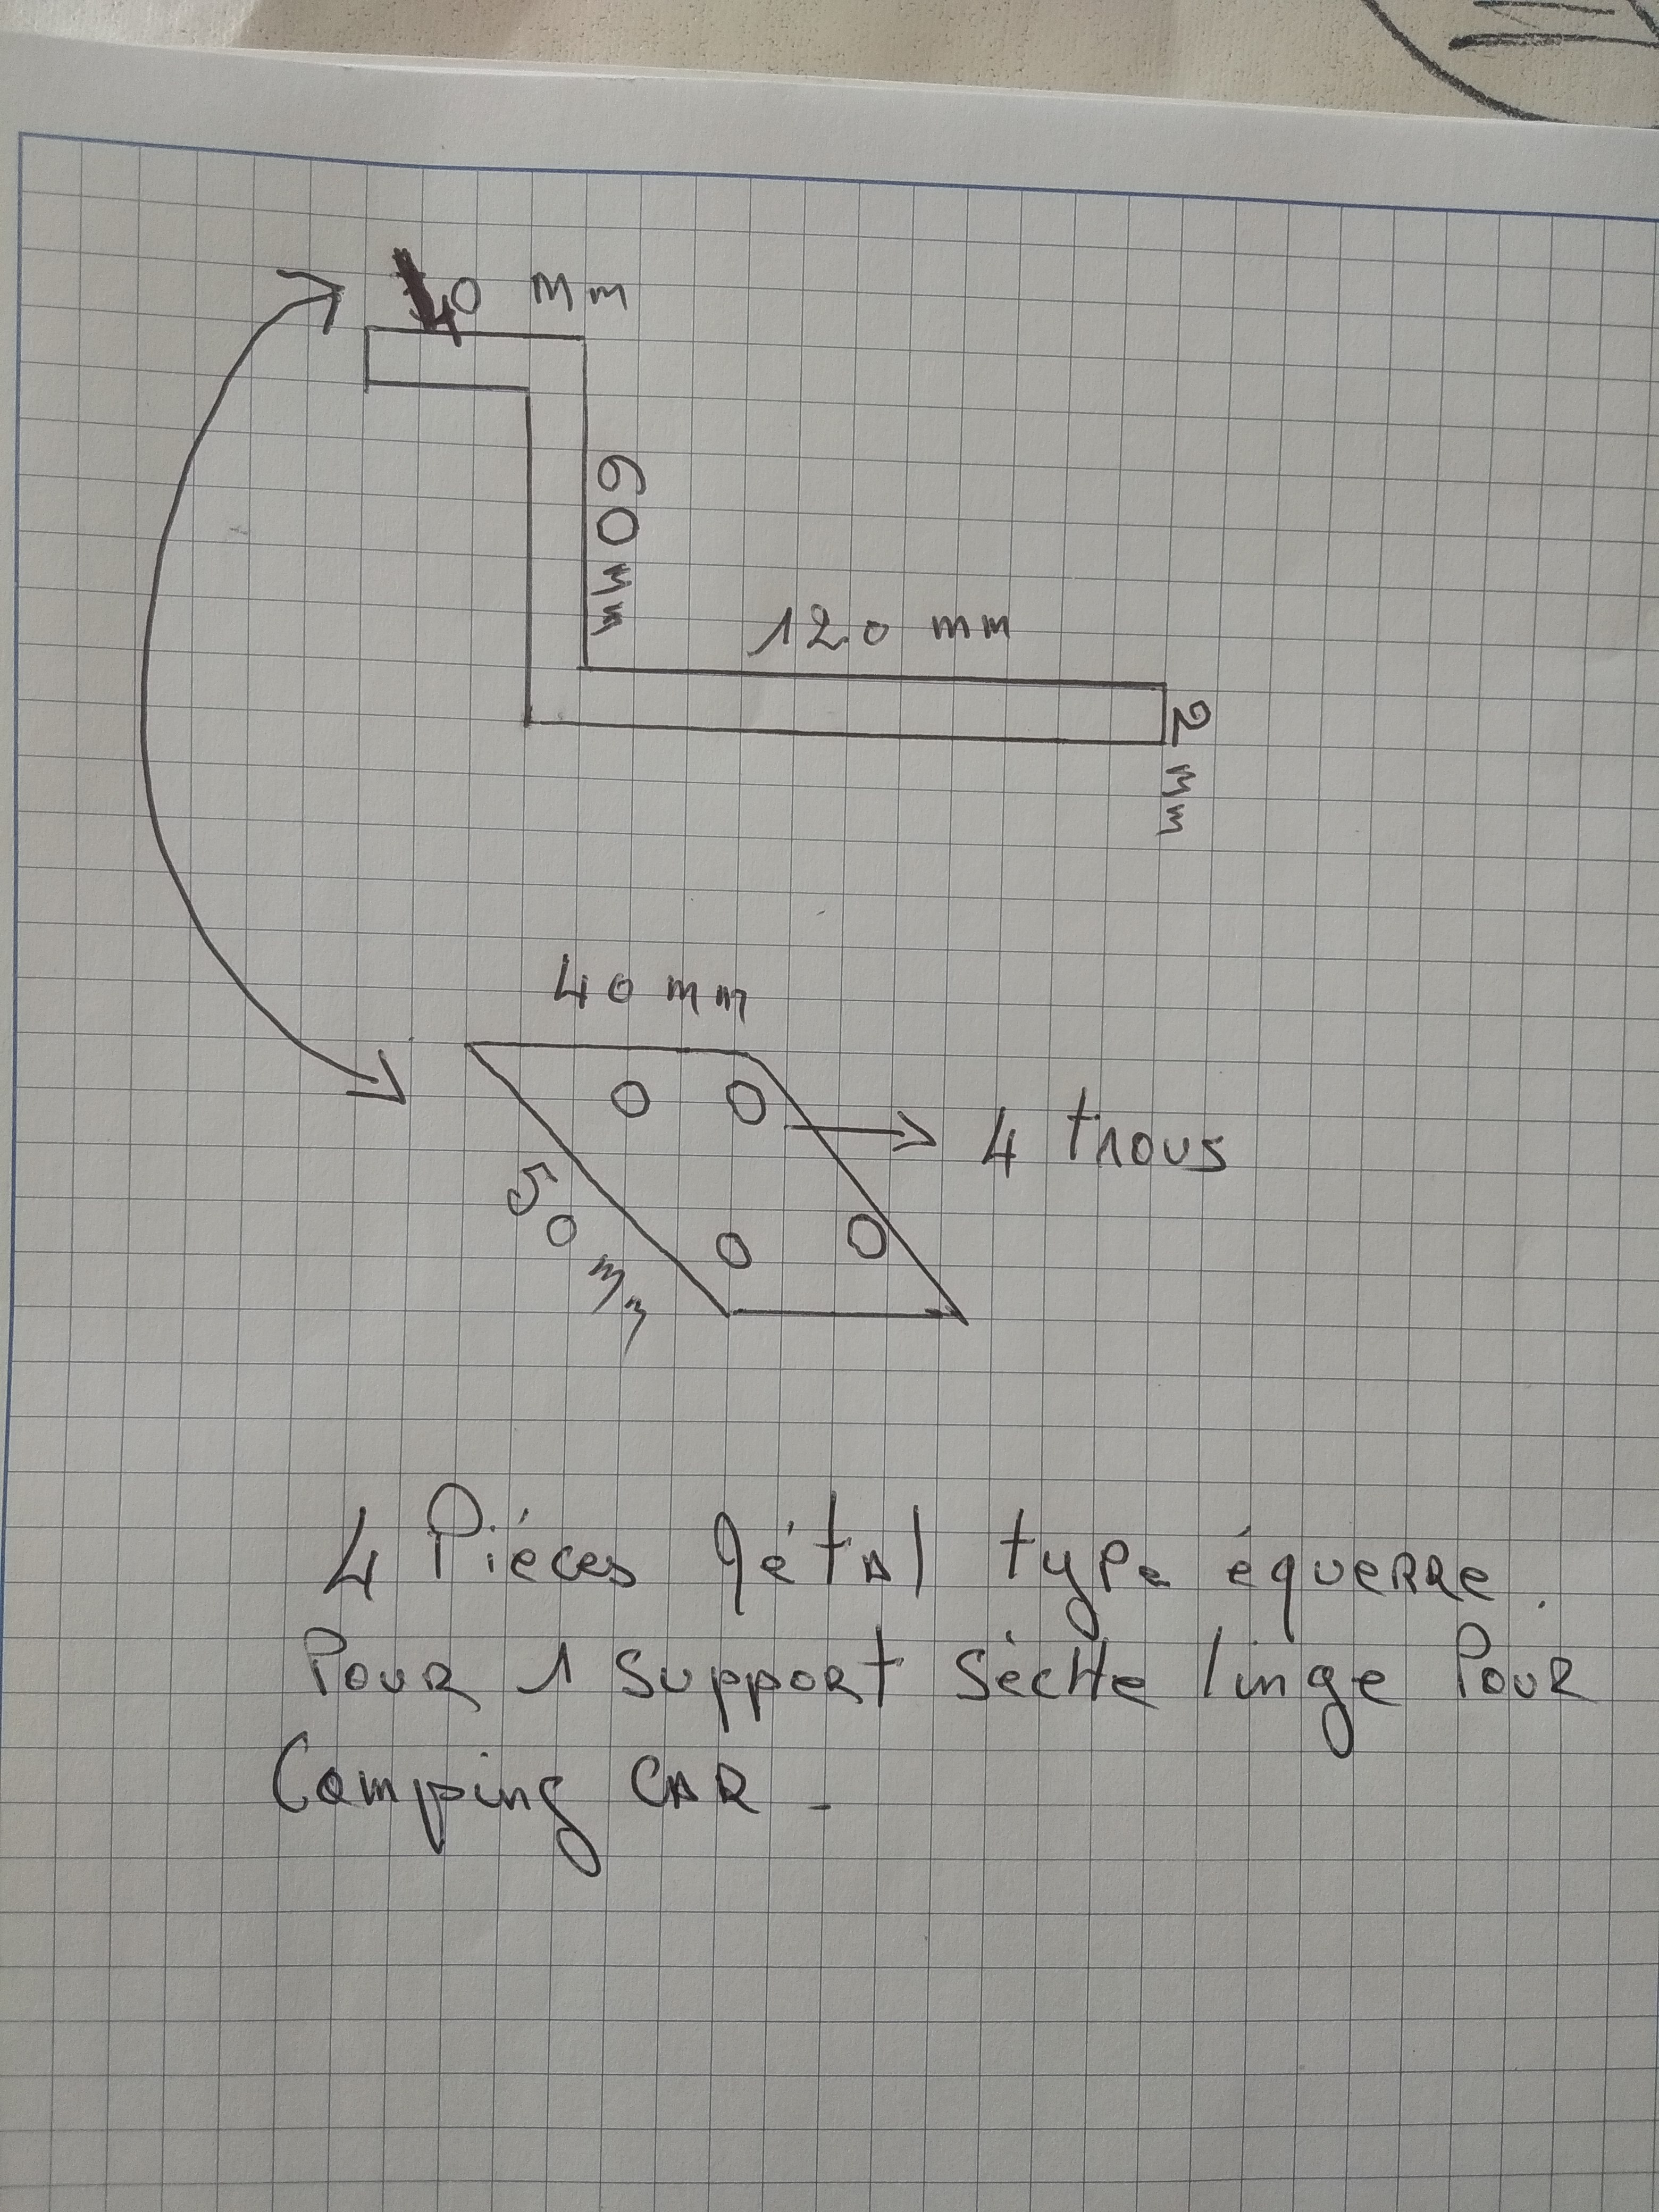 40 mm
60 mm
120 mm
2 mm
40 mm
50 mm
4 trous
4 Piéces Métal type équerre.
Pour 1 support séche linge Pour
Camping CAR -